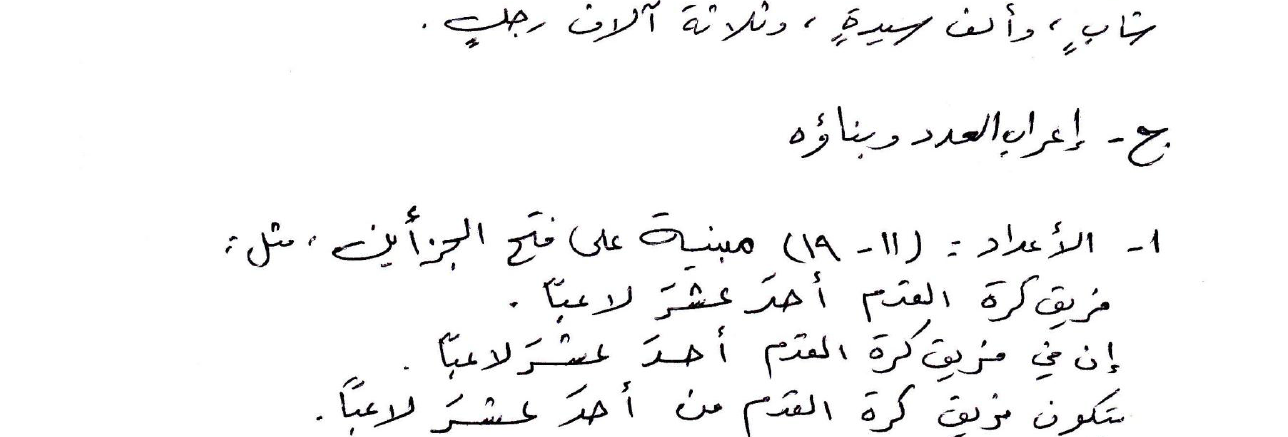 شابٍ، وألف سيدةٍ، وثلاثة آلاف رجلٍ.
ج- إعراب العدد وبناؤه
١- الأعداد: (١١-١٩) مبنية على فتح الجزأين، مثل:
فريق كرة القدم أحدَ عشرَ لاعبًا.
إن في فريق كرة القدم أحدَ عشرَ لاعبًا.
يتكون فريق كرة القدم من أحدَ عشرَ لاعبًا.